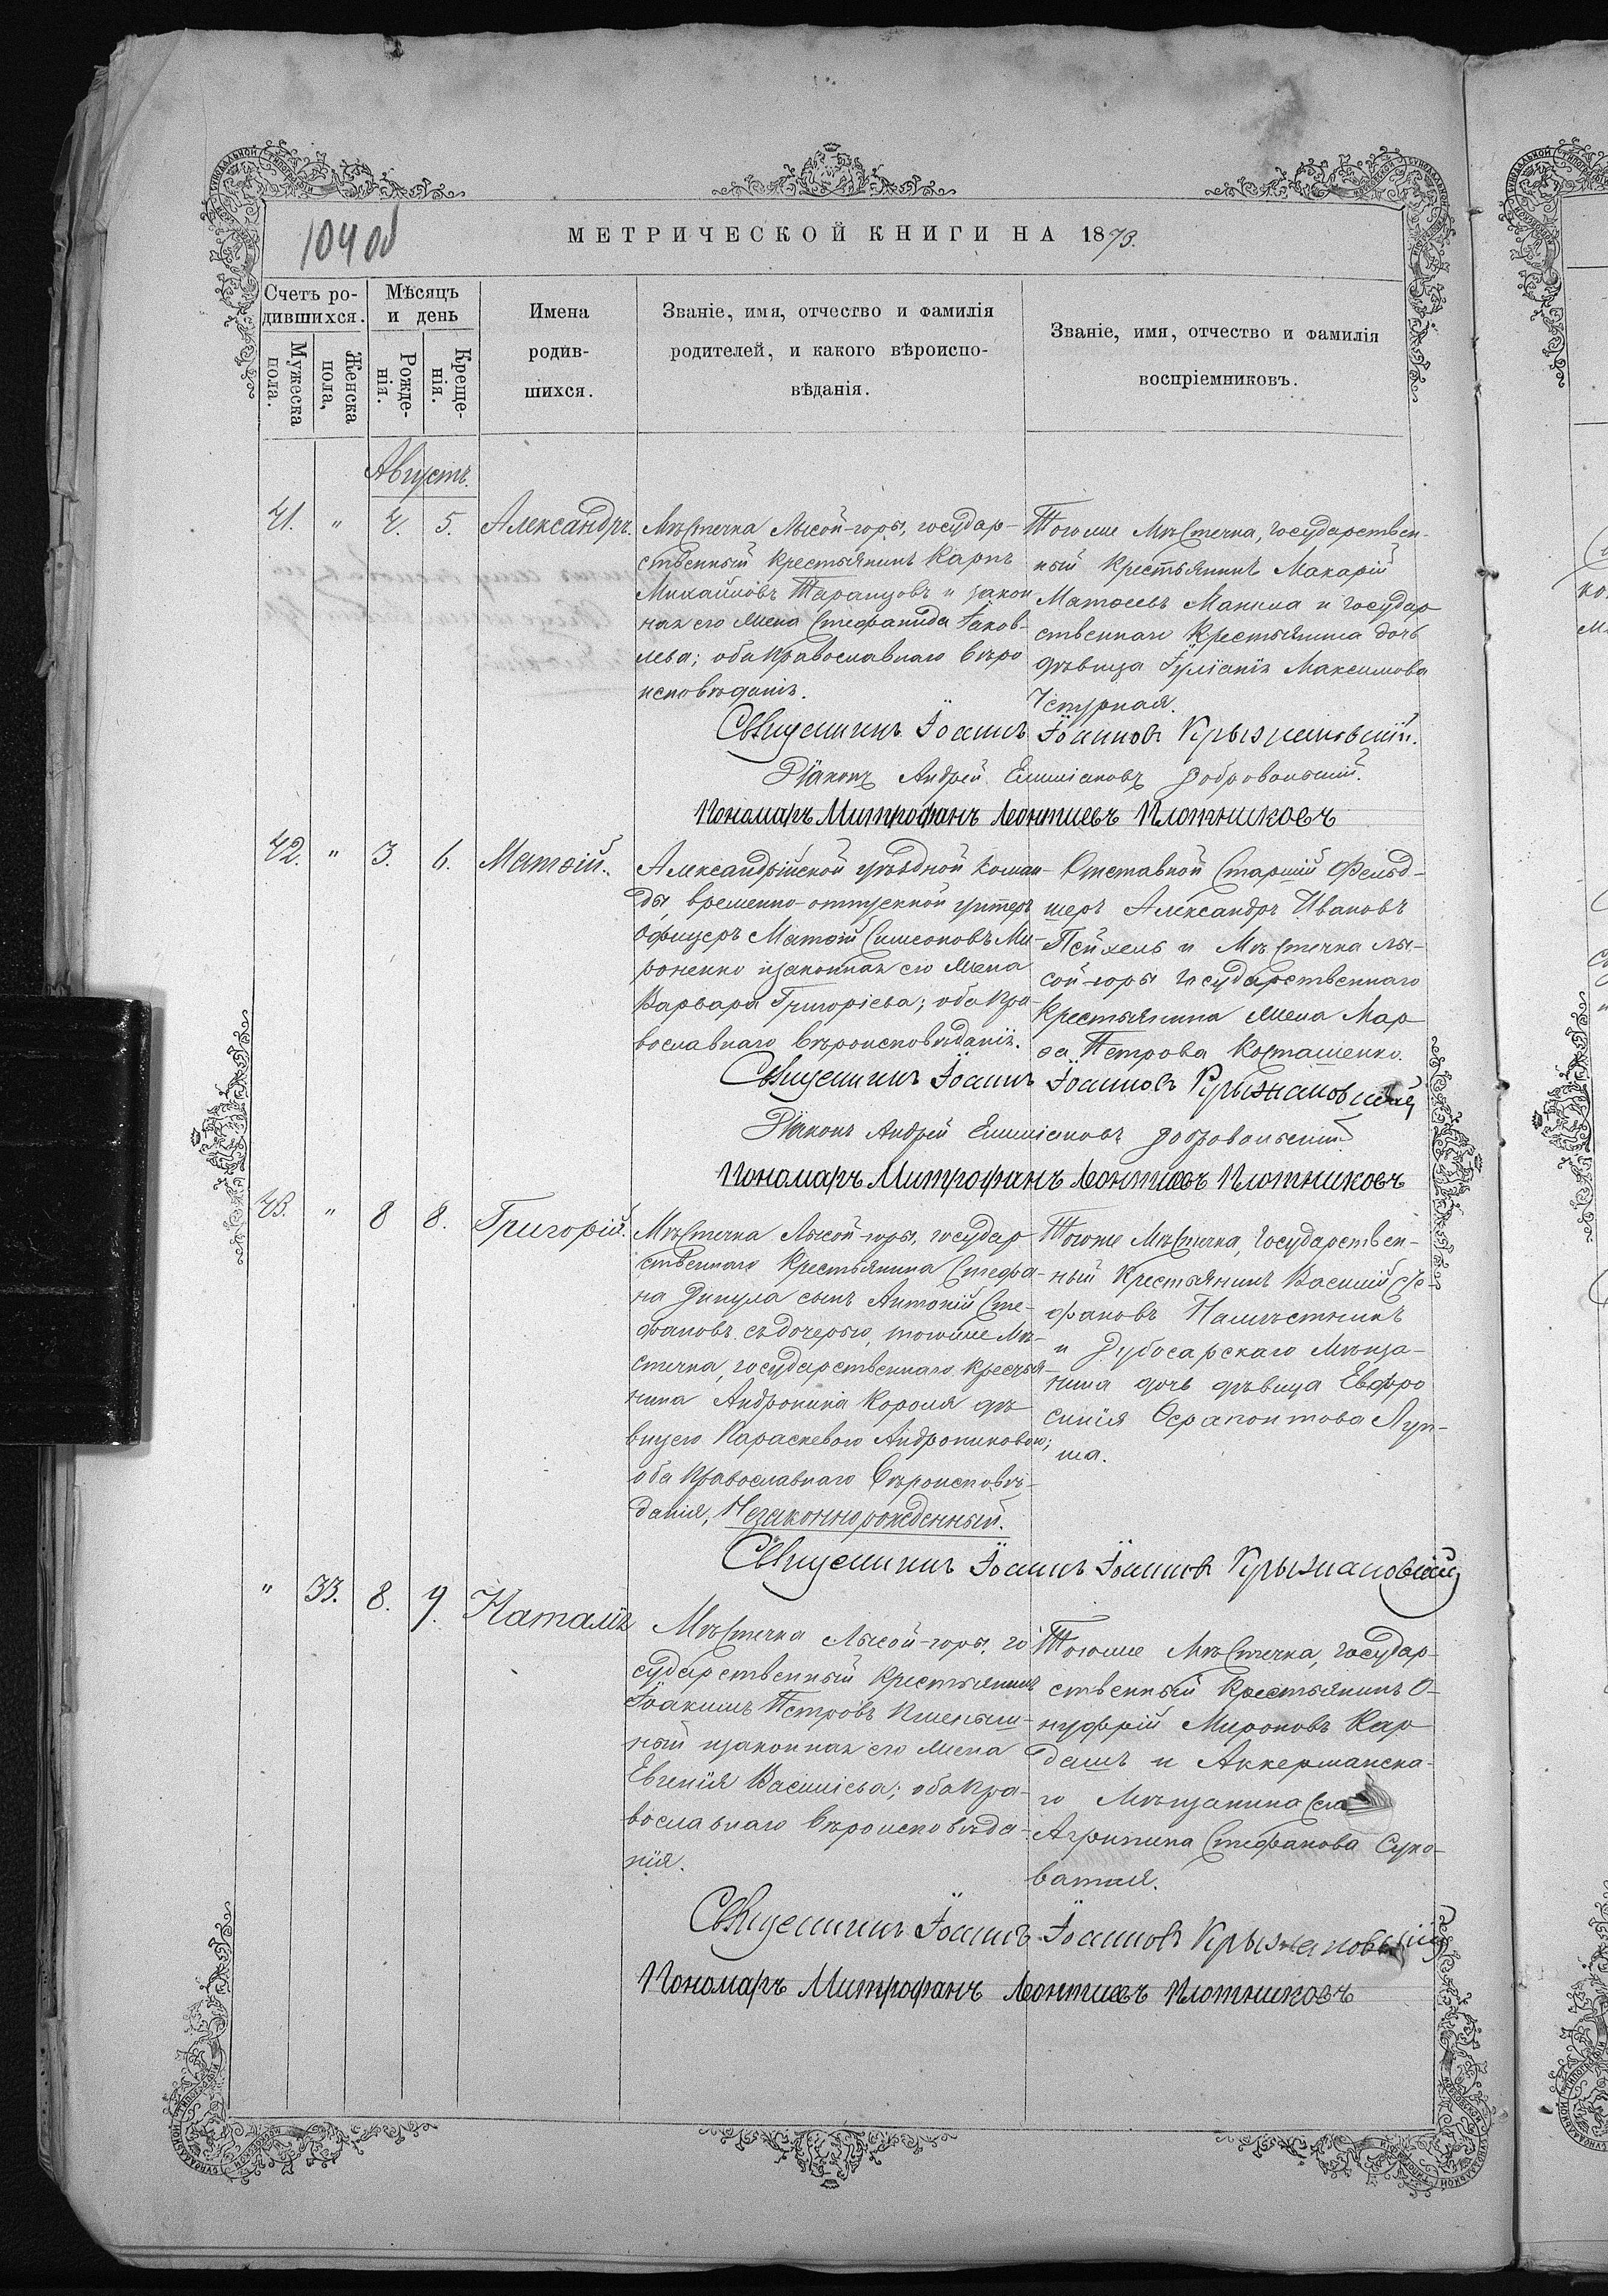 104 об
МЕТРИЧЕСКОЙ КНИГИ НА 1873.
Счетъ ро-
дившихся.
Мужеска
пола.
Женска
пола,
Мѣсяцъ
и день
Рожде-
нія.
Креще-
нія.
Имена
родив-
шихся.
Званіе, имя, отчество и фамилія
родителей, и какого вѣроиспо-
вѣданія.
Званіе, имя, отчество и фамилія
воспріемниковъ.
Августъ.
41. " 4. 5. Александръ.
Мѣстечка Лысой-горы, государ-
ственный крестьянинъ Карпъ
Михайловъ Таранцовъ и закон
ная его жена Стефанида Іаков-
лева; оба православнаго вѣро
исповѣданія.
Тогоже Мѣстечка, государствен-
ный крестьянинъ Макарій
Матѳеевъ Манжа и государ
ственнаго крестьянина дочь
дѣвица Іуліанія Максимова
Чепурная.
Священникъ Іоаннъ Іоанновъ Крыжановскій.
Діаконъ Андрей Емиліановъ Добровольскій.
Пономарь Митрофанъ Леонтиевъ Плотниковъ
42. " 3. 6. Матѳій.
Александрійской уѣздной коман-
ды, временно-отпускной унтеръ
офицеръ Матѳій Симеоновъ Ми-
роненко и законная его жена
Варвара Григоріева; оба пра-
вославнаго вѣроисповѣданія.
Отставной Старшій Фельд-
шеръ Александръ Ивановъ
Пейхель и Мѣстечка Лы-
сой-горы государственнаго
крестьянина жена Мар-
ѳа Петрова Косташенко.
Священникъ Іоаннъ Іоанновъ Крыжановскій
Діаконъ Андрей Емиліановъ Добровольскій
Пономарь Митрофанъ Леонтиевъ Плотниковъ
43. " 8 8. Григорій.
Мѣстечка Лысой-горы, государ
ственнаго крестьянина Стефа-
на Дикула сынъ Антоній Сте-
фановъ съ дочерью, тогоже Мѣ-
стечка, государственнаго крестья-
нина Андроника Короля дѣ-
вицею Параскевою Андрониковою;
оба православнаго вѣроисповѣ-
данія, Незаконнорожденный.
Тогоже Мѣстечка, государствен-
ный крестьянинъ Василій Сте-
фановъ Намѣстникъ
и Дубосарскаго Мѣща-
нина дочь дѣвица Евфро
синія Ѳерапонтова Луп-
ша.
Священникъ Іоаннъ Іоанновъ Крыжановскій
" 33. 8. 9. Наталія
Мѣстечка Лысой-горы, го
сударственный крестьянинъ
Іоакимъ Петровъ Пшенич-
ный и законная его жена
Евгенія Василіева; оба пра-
вославнаго вѣроисповѣда-
нія.
Тогоже Мѣстечка, государ-
ственный крестьянинъ О-
нуфрій Мироновъ Кар
дашъ и Аккерманска-
го Мѣщанина
Агрипина Стефанова Суко-
ватая.
Священникъ Іоаннъ Іоанновъ Крыжановскій
Пономарь Митрофанъ Леонтиевъ Плотниковъ